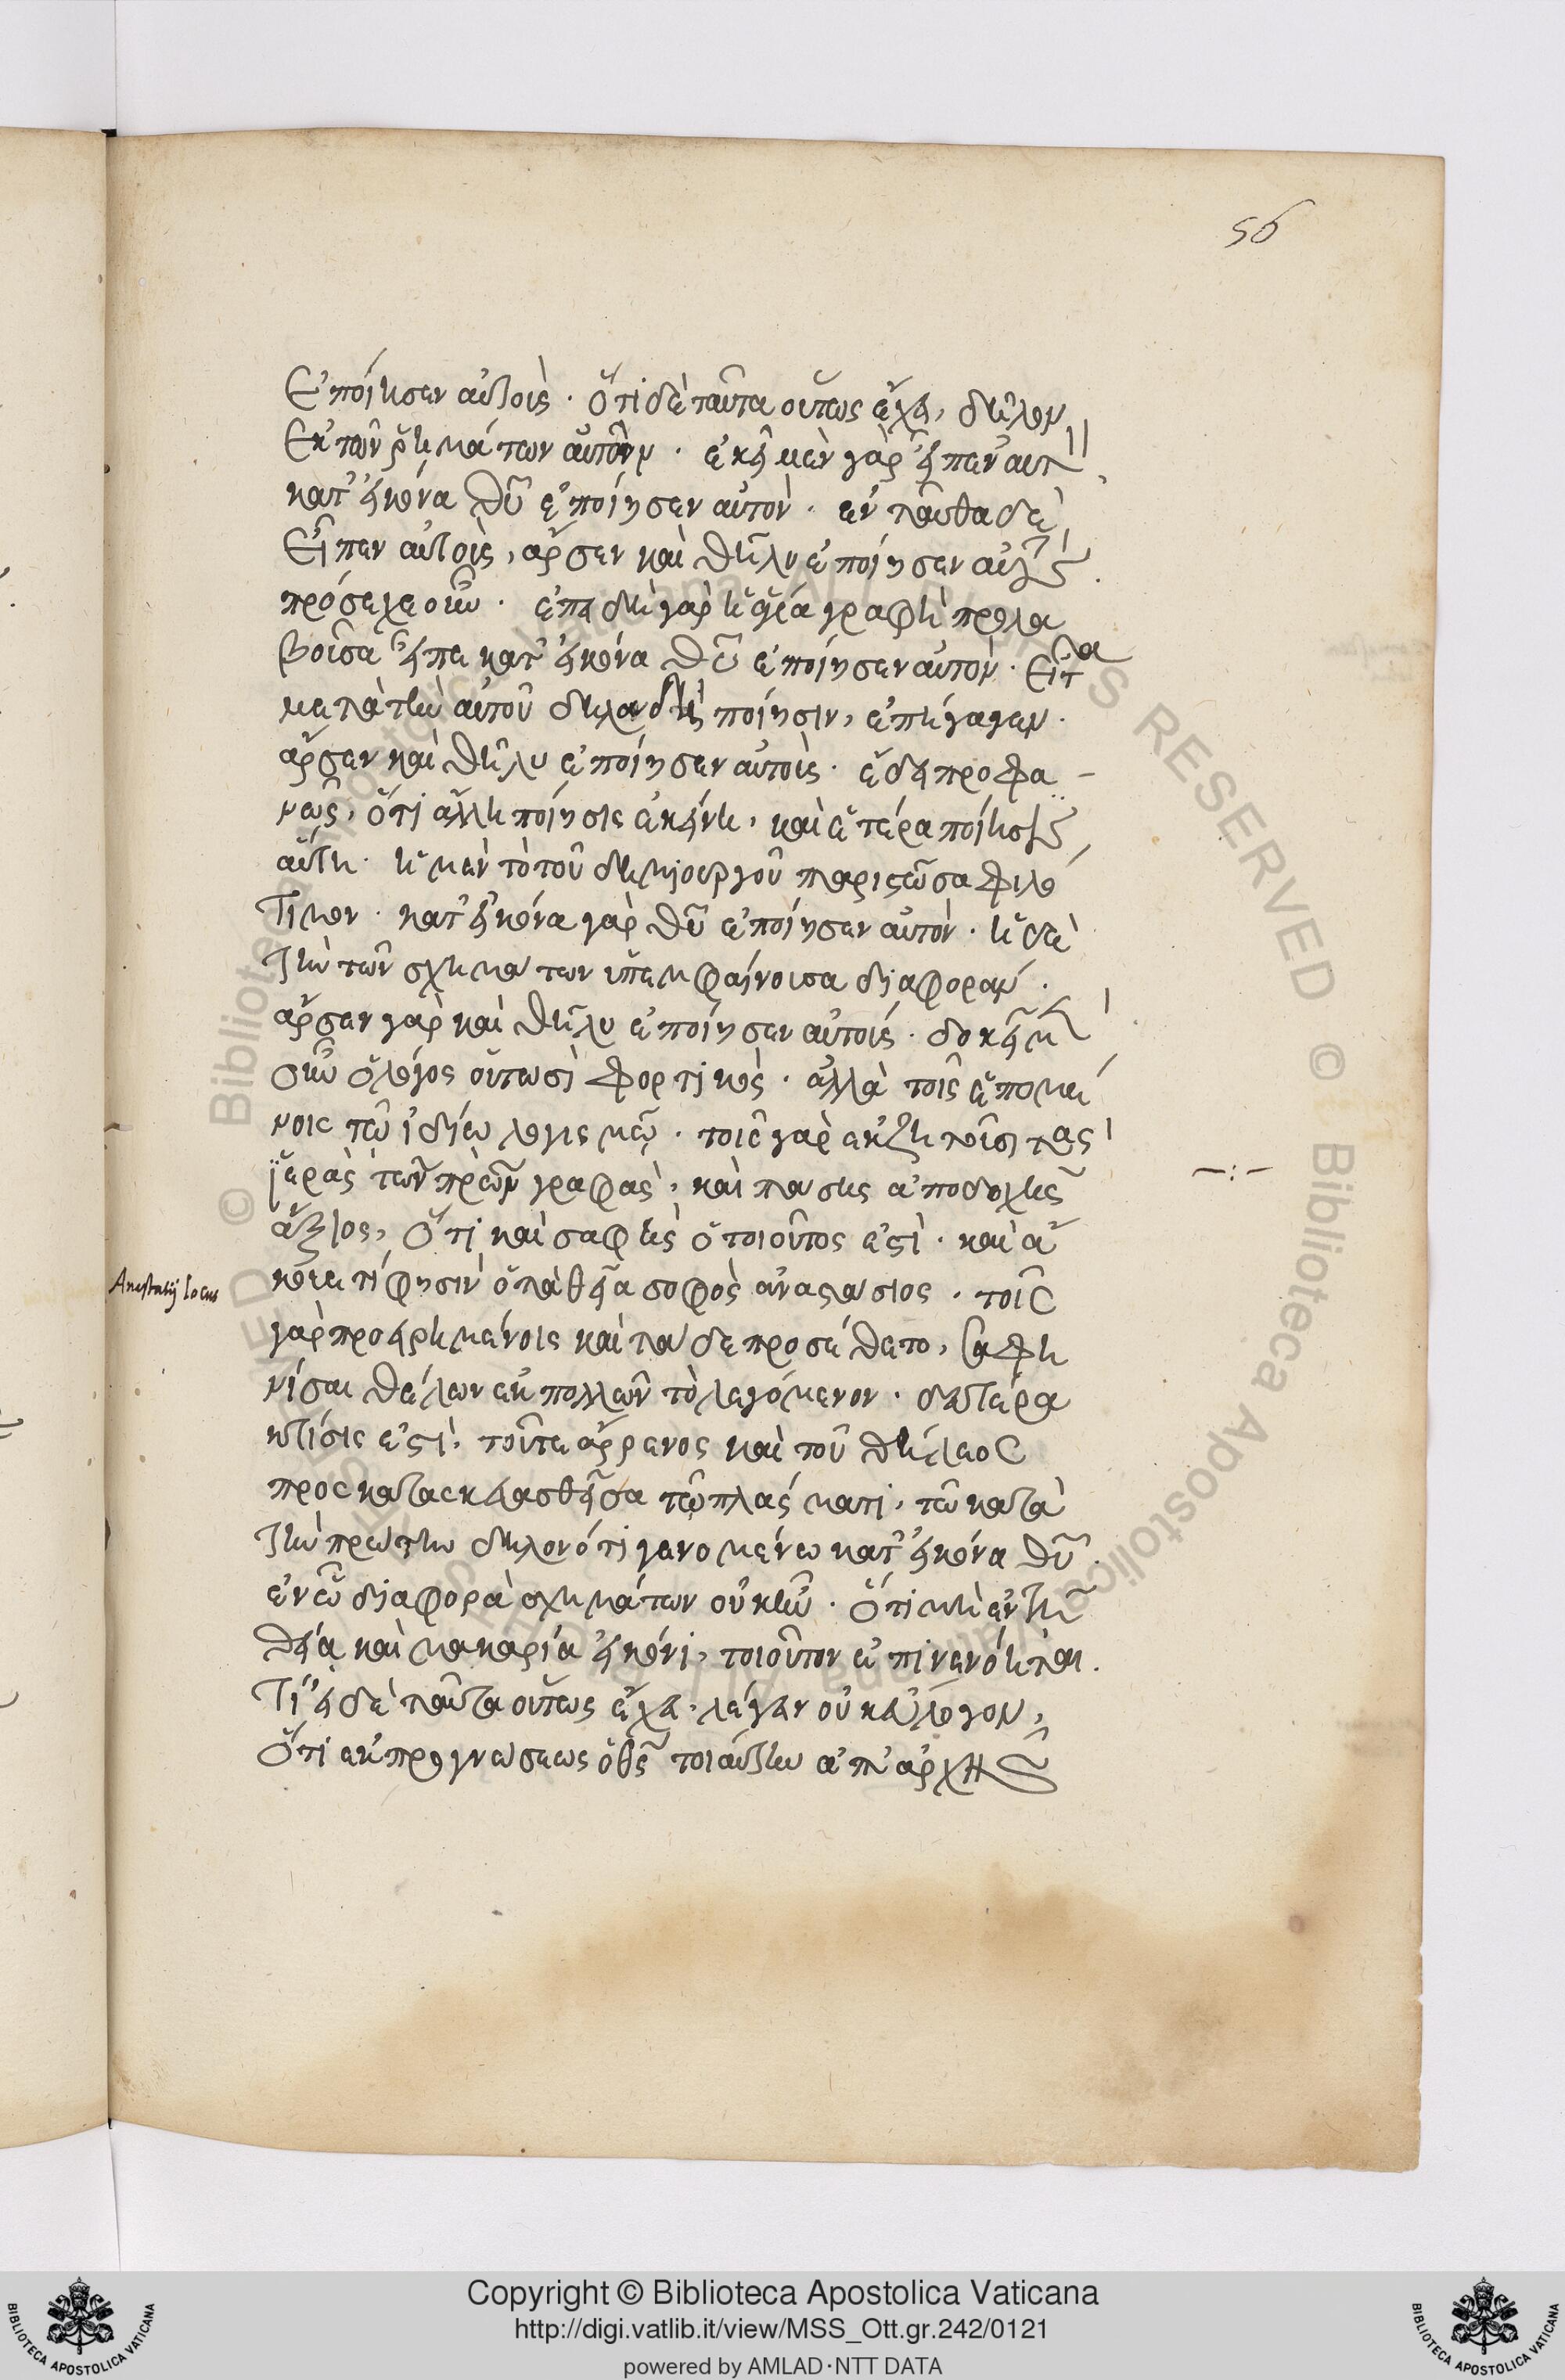 56
Ἐποίησεν αὐτούς. ὅτι δὲ ταῦτα οὕτως ἔχει, δῆλον
Ἐκ τῶν ῥημάτων αὐτῶν. ἐκεῖ μὲν γὰρ εἶπεν αυτ
κατ' εἰκόνα θῦ ἐποίησεν αὐτόν. ἐνταῦθα δὲ
Εἶπεν αὐτοῖς, ἄρσεν καὶ θῆλυ ἐποίησεν αὐτούς.
πρόσεχε οὖν. ἐπειδὴ γὰρ ἡ θεία γραφὴ προλα
βοῦσα εἶπε κατ' εἰκόνα θῦ ἐποίησεν αὐτόν. Εἶτα
μετὰ τὴν αὐτοῦ δηλαδὴ ποίησιν, ἐπήγαγεν.
ἄρσεν καὶ θῆλυ ἐποίησεν αὐτούς. ἔδει προφα-
νῶς, ὅτι ἄλλη ποίησις ἐκείνη, καὶ ἑτέρα ποίησις
αὕτη. ἡ μὲν τὸ τοῦ δημιουργοῦ παριστῶσα φιλό
τιμον. κατ' εἰκόνα γὰρ θῦ ἐποίησεν αὐτόν. ἡ δὲ
τὴν τῶν σχημάτων ὑπεμφαίνουσα διαφοράν.
ἄρσεν γὰρ καὶ θῆλυ ἐποίησεν αὐτούς. δοκεῖ μ
οὖν ὁ λόγος οὑτωσὶ φορτικός. ἀλλὰ τοῖς ἑπομέ
νοις τῷ ἰδίῳ λογισμῷ. τοῖς γὰρ ἐκζητοῦσι τὰς
ἱερὰς τῶν πρων γραφάς, καὶ πάσης ἀποδοχῆς
ἄξιος, Ὅτι καὶ σαφὴς ὁ τοιοῦτος ἐστί. καὶ ἄ
κουε τί φησιν ὁ τὰ θεῖα σοφὸς ἀναστάσιος. τοῖς
Anastasij locus
γὰρ προειρημένοις καὶ τάδε προσέθετο, σαφη
νίσαι θέλων ἐκ πολλῶν τὸ λεγόμενον. δευτέρα
κτίσις ἐστί, τοῦτε ἄρρενος καὶ τοῦ θήλεος
προσκατασκευασθεῖσα τῷ πλάσματι, τῷ κατὰ
τὴν πρώτην δηλονότι γενομένῳ κατ' εἰκόνα θῦ.
ἐν ᾧ διαφορὰ σχημάτων οὐκ ἦν. Ὅτι μὴ ἐν τῇ
θεία καὶ μακαρία εἰκόνι, τοιοῦτον ἐπινενόηται.
Τί εἰ δὲ ταῦτα οὕτως ἔχει. λέγειν οὐκ εὔλογον,
Ὅτι ἐκ προγνώσεως ὁ θς τοιαύτην ἀπ' ἀρχῆς
Copyright © Biblioteca Apostolica Vaticana
http://digi.vatlib.it/view/MSS_Ott.gr.242/0121
powered by AMLAD·NTT DATA